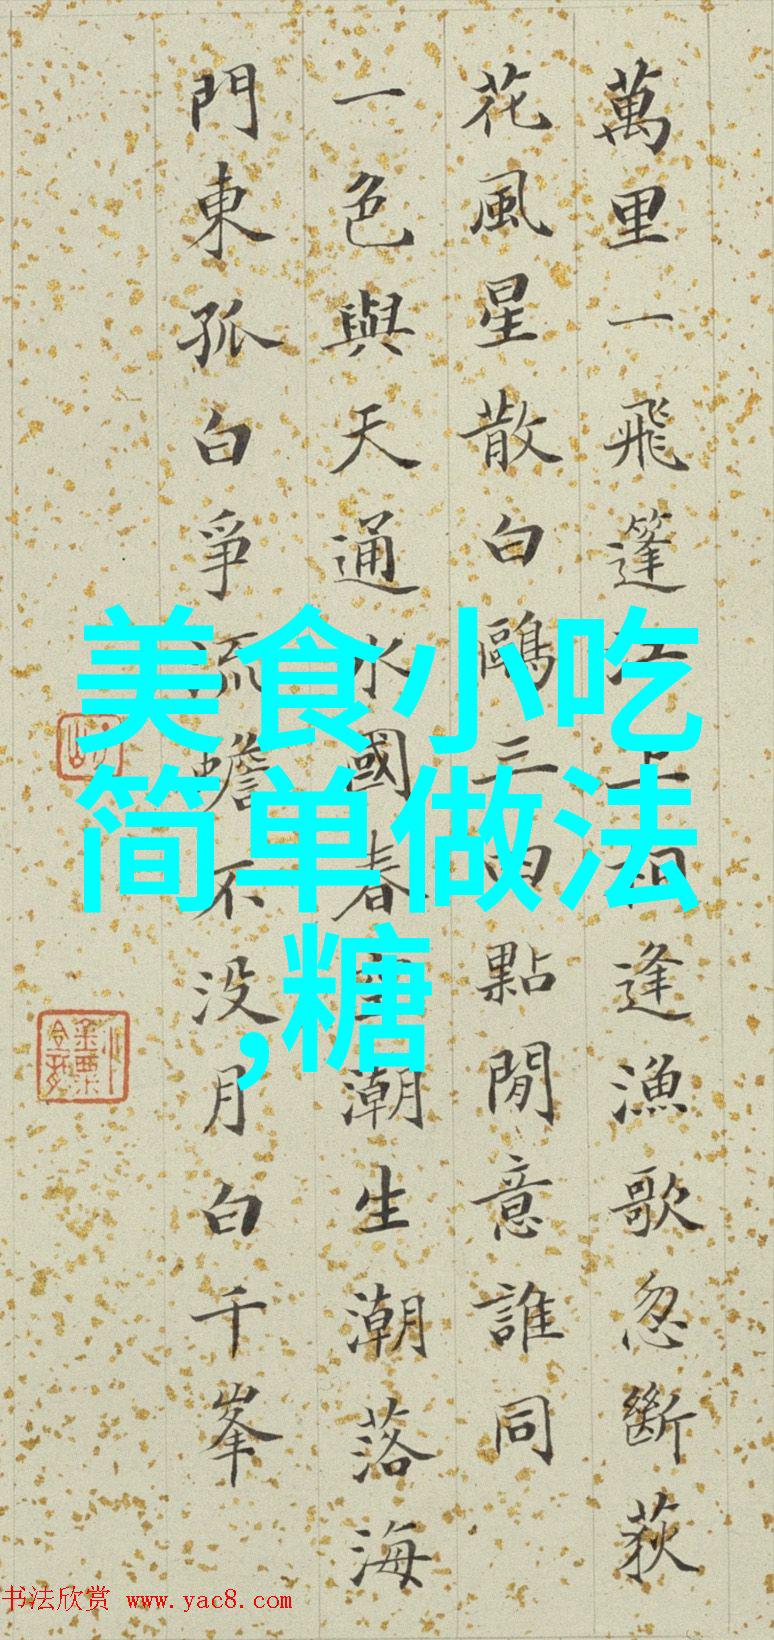 萬里一飛篷江上相逢漁歌忽斷荻
花風星散白鷗三四點閒意誰同
一色與天通水國春空潮生潮落海
門東孤白爭流蟾不没月白千峯
美食小吃
简单做法
,糖
书法欣赏 www.yac8.com